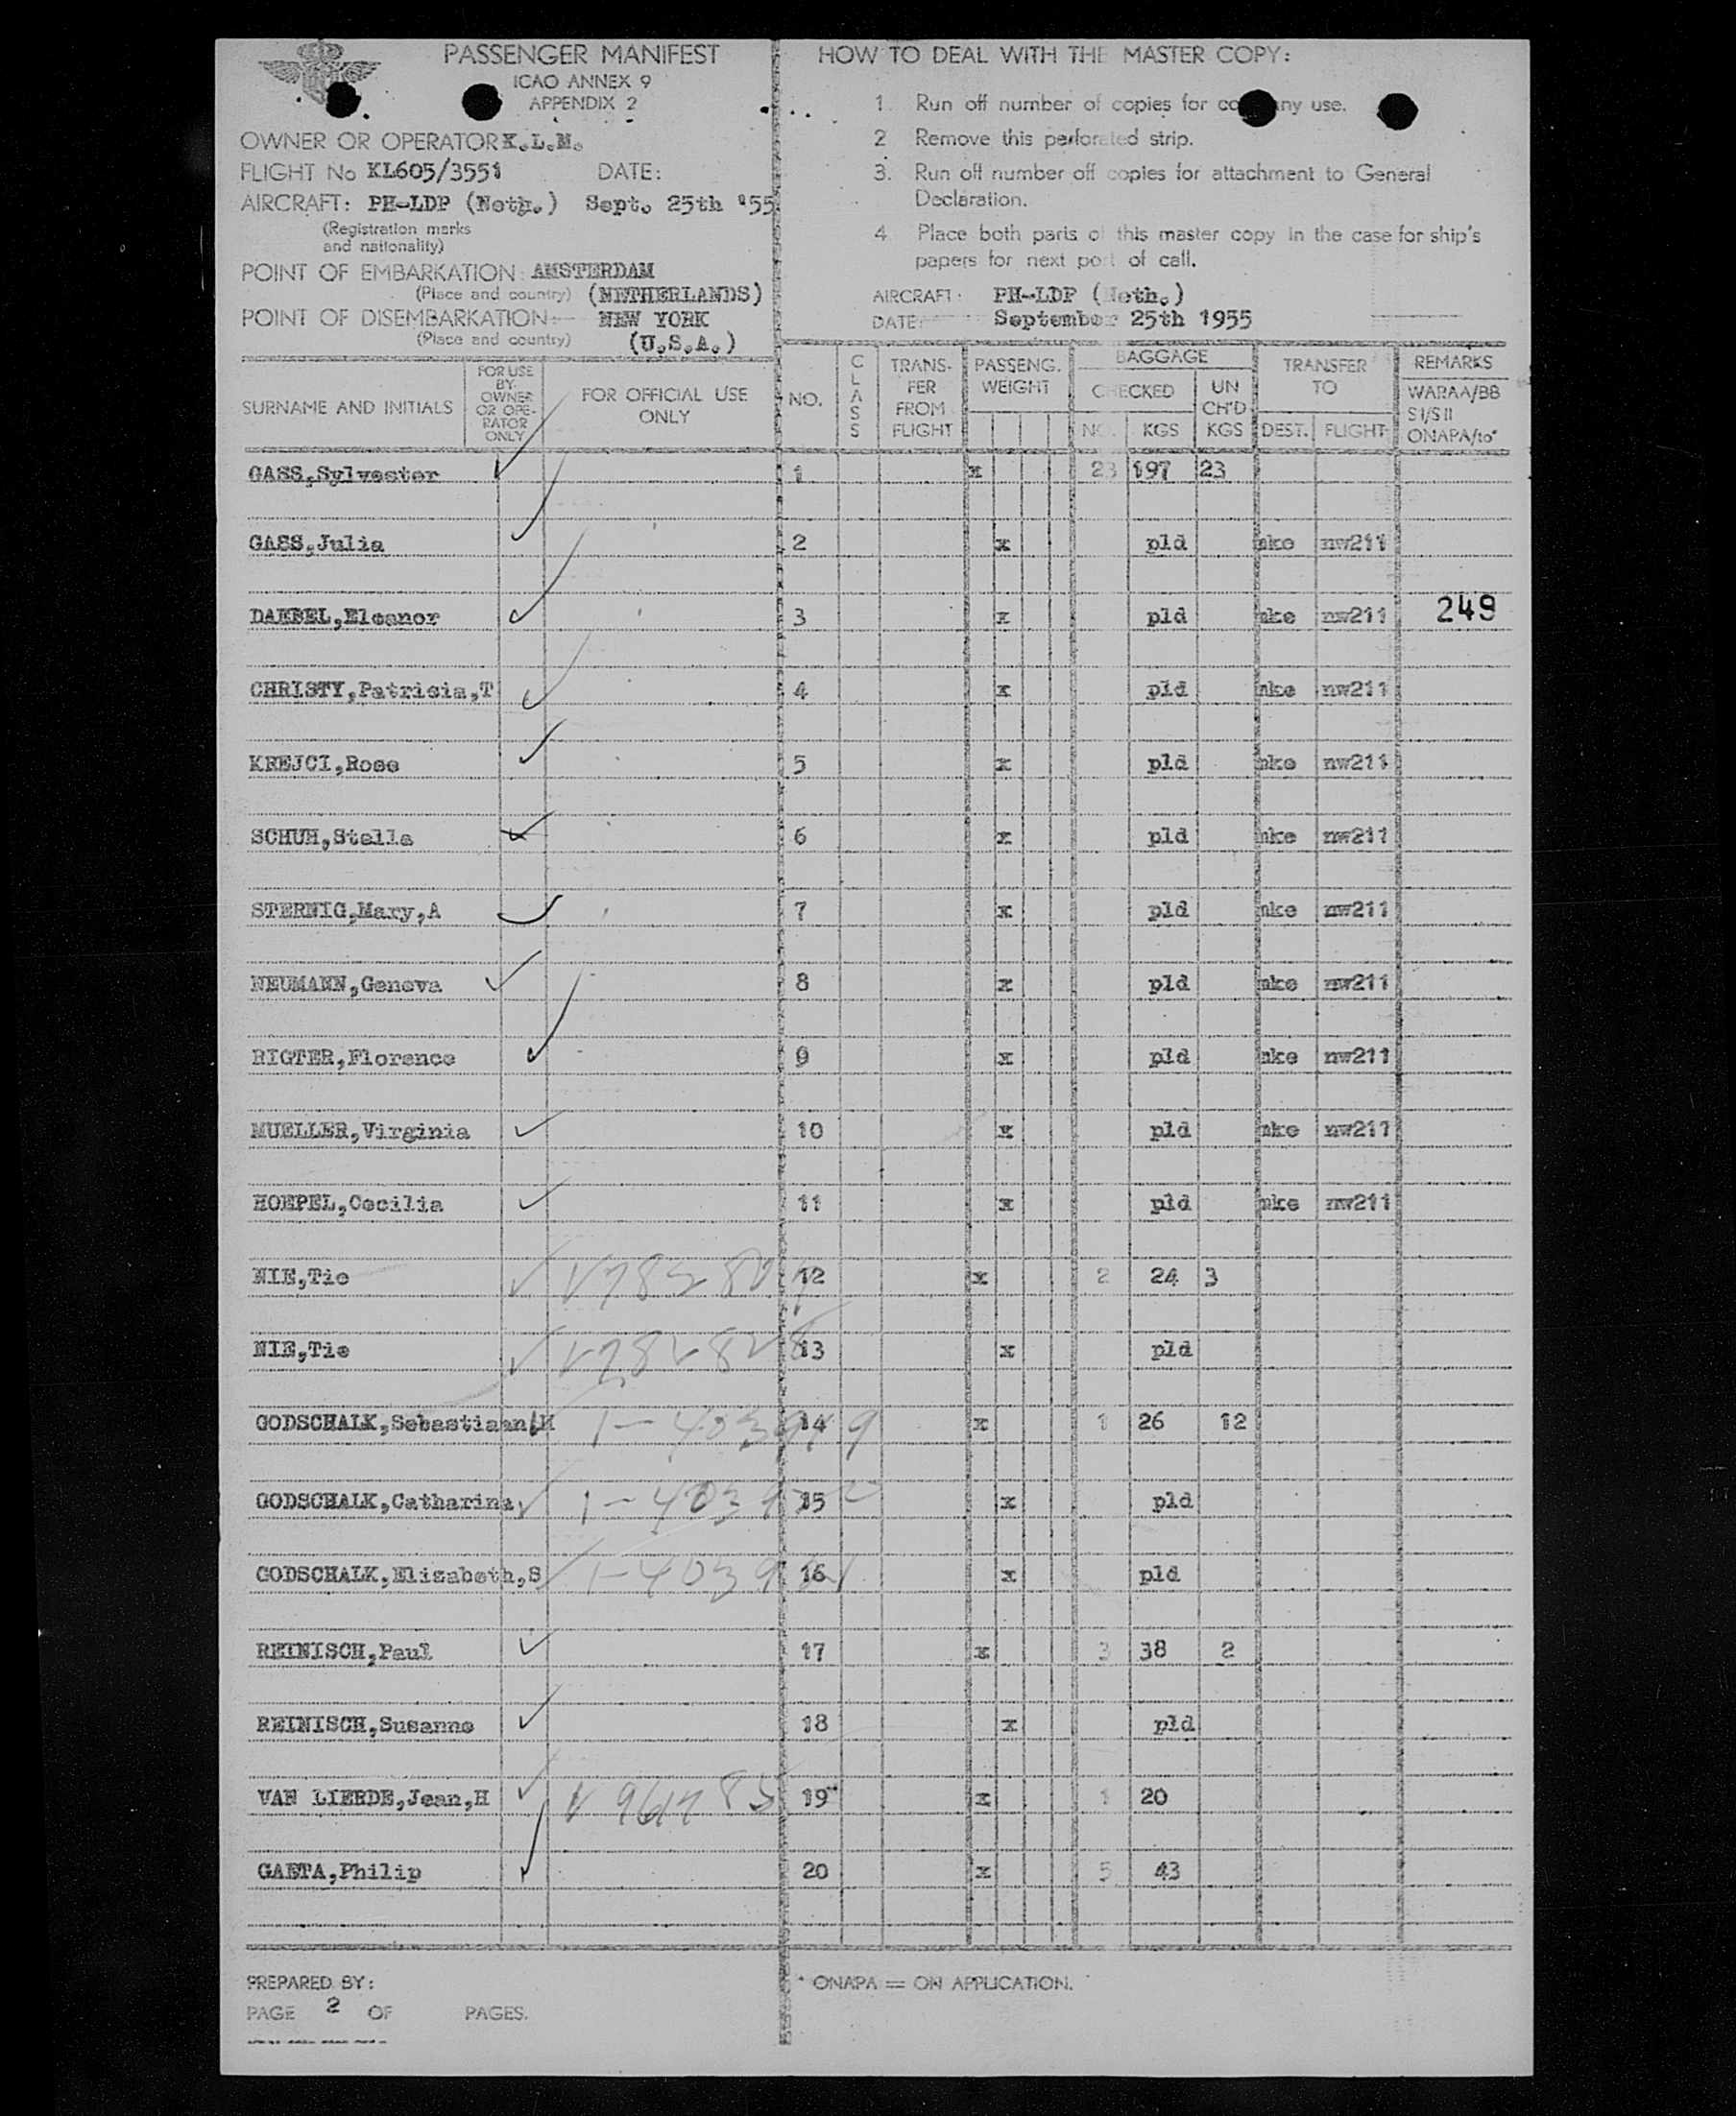 PASSENGER MANIFEST
ICAO ANNEX 9
APPENDIX 2
OWNER OR OPERATOR K.L.M.
FLIGHT No KL605/3551 DATE:
AIRCRAFT: PH-LDP (Neth.) Sept. 25th '55
(Registration marks
and nationality)
POINT OF EMBARKATION: AMSTERDAM
(Place and country) (NETHERLANDS)
POINT OF DISEMBARKATION: NEW YORK
(Place and country) (U.S.A.)
HOW TO DEAL WITH THE MASTER COPY:
1. Run off number of copies for company use.
2 Remove this perforated strip.
3. Run off number off copies for attachment to General
Declaration.
4 Place both parts of this master copy in the case for ship's
papers for next port of call.
AIRCRAFT: PH-LDP (Neth.)
DATE: September 25th 1955
SURNAME AND INITIALS
FOR USE
BY
OWNER
OR OPE-
RATOR
ONLY
FOR OFFICIAL USE
ONLY
NO.
CLASS
TRANS-
FER
FROM
FLIGHT
PASSENG.
WEIGHT
BAGGAGE
CHECKED
NO. KGS
UN
CH'D
KGS
TRANSFER
TO
DEST. FLIGHT
REMARKS
WARAA/BB
SI/SII
ONAPA/to*
GASS,Sylvester 1 x 23 197 23
GASS,Julia 2 x pld mke nw211
DAEBEL,Eleanor 3 x pld mke nw211 249
CHRISTY,Patricia,T 4 x pld mke nw211
KREJCI,Rose 5 x pld mke nw211
SCHUH,Stella 6 x pld mke nw211
STERNIG,Mary,A 7 x pld mke nw211
NEUMANN,Geneva 8 x pld mke nw211
RIGTER,Florence 9 x pld mke nw211
MUELLER,Virginia 10 x pld mke nw211
HOEPEL,Cecilia 11 x pld mke nw211
NIE,Tie 12 x 2 24 3
NIE,Tie 13 x pld
GODSCHALK,Sebastiaan,M 14 x 1 26 12
GODSCHALK,Catharina 15 x pld
GODSCHALK,Elisabeth,S 16 x pld
REINISCH,Paul 17 x 3 38 2
REINISCH,Susanne 18 x pld
VAN LIERDE,Jean,H 19 x 1 20
GAETA,Philip 20 x 5 43
PREPARED BY:
PAGE 2 OF PAGES.
* ONAPA = ON APPLICATION.